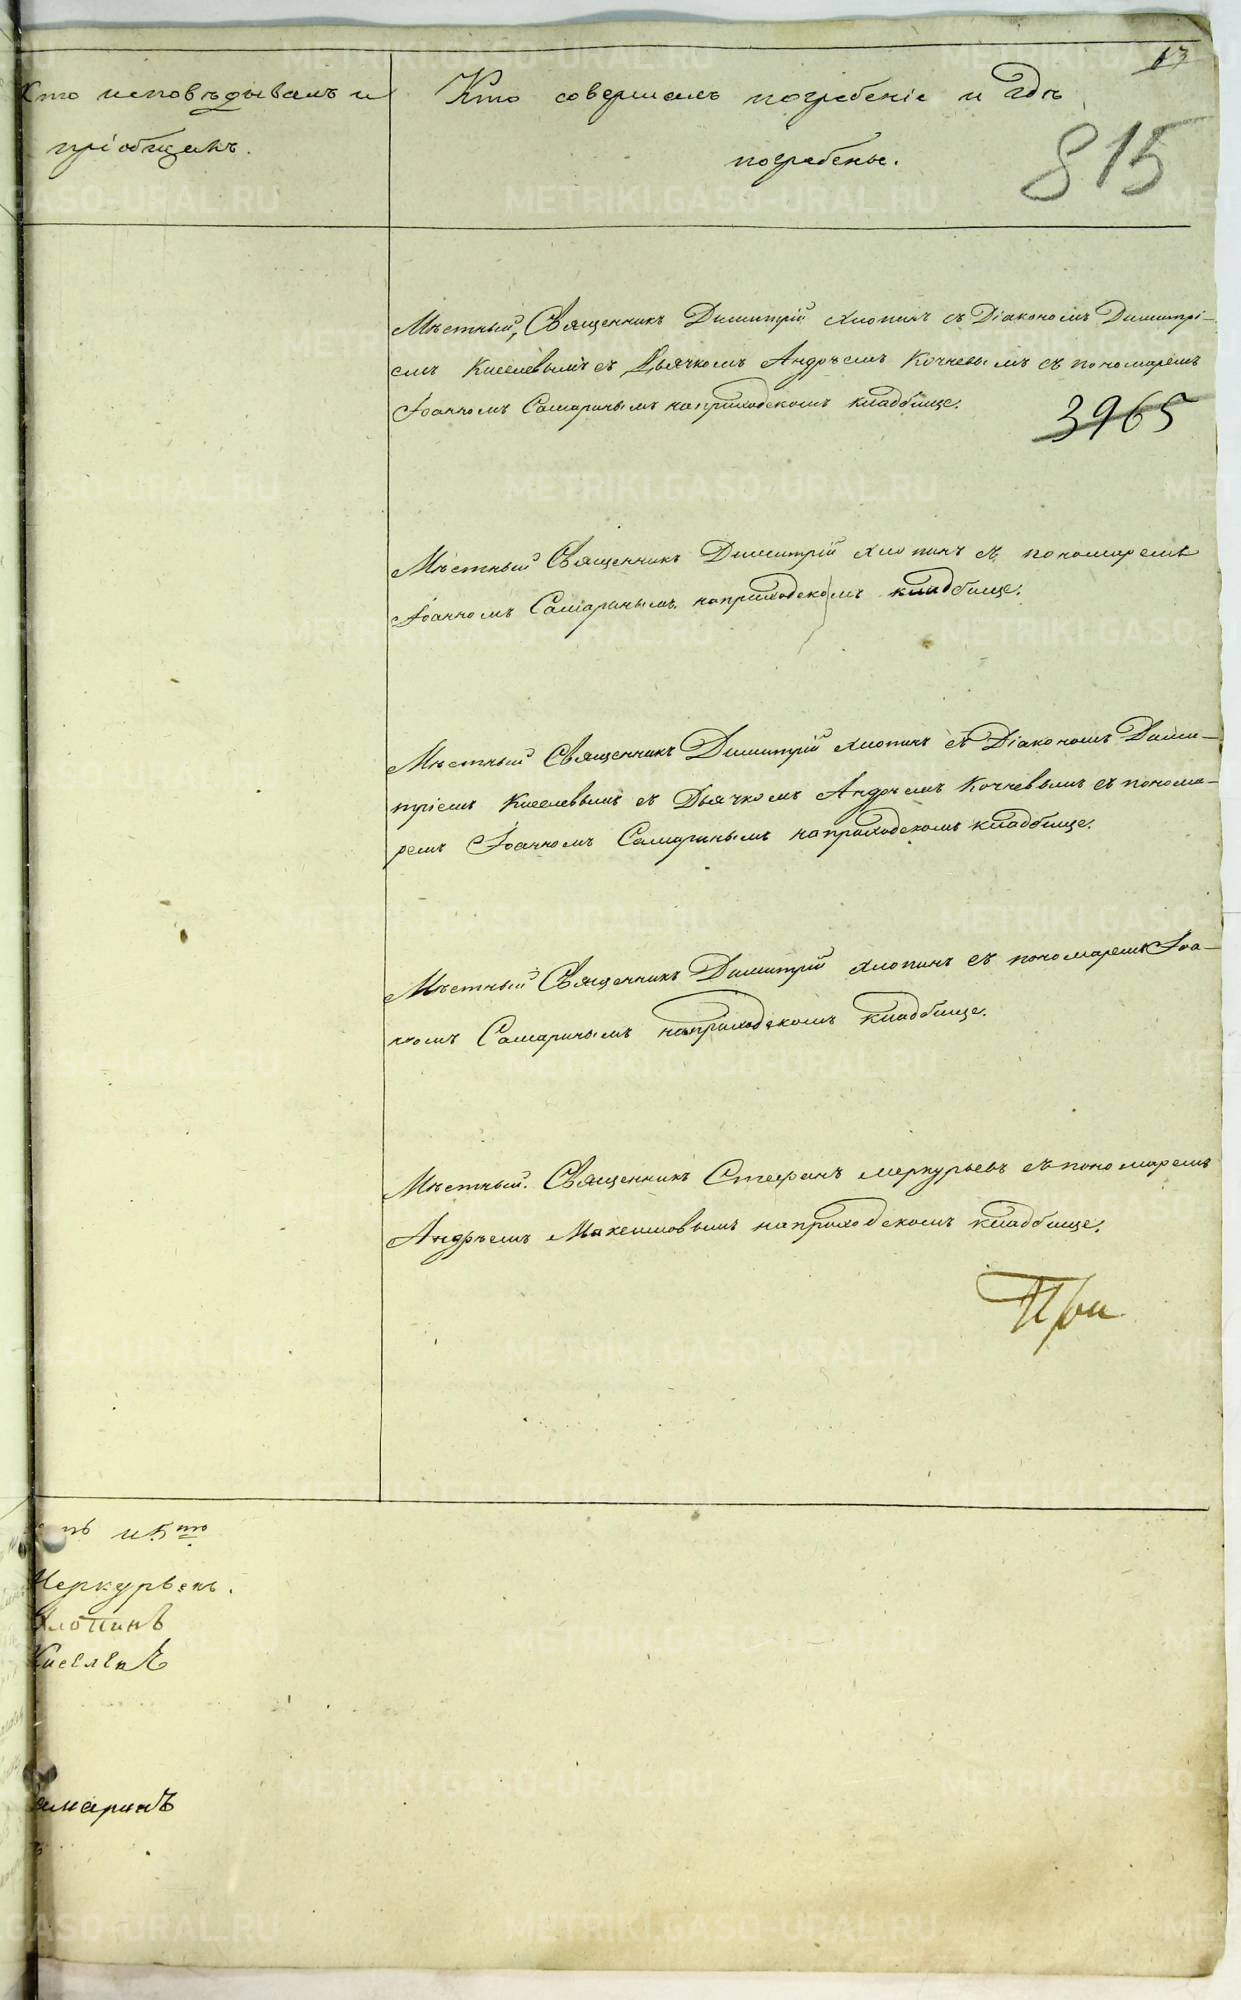 13
Кто исповѣдывалъ и
пріобщалъ.
Кто совершалъ погребеніе и гдѣ
погребены.
815
Мѣстный Священникъ Димитрій Хлопинъ съ Діакономъ Димитрі-
емъ Киселевымъ съ Дьячкомъ Андреемъ Кочневымъ съ пономаремъ
Іоанномъ Самаринымъ на приходскомъ кладбище.
3965
Мѣстный Священникъ Димитрій Хлопинъ съ пономаремъ
Іоанномъ Самаринымъ на приходскомъ кладбище.
Мѣстный Священникъ Димитрій Хлопинъ съ Діакономъ Дими-
тріемъ Киселевымъ съ Дьячкомъ Андреемъ Кочневымъ съ понома-
ремъ Іоанномъ Самаринымъ на приходскомъ кладбище.
Мѣстный Священникъ Димитрій Хлопинъ съ пономаремъ Іоа-
нномъ Самаринымъ на приходскомъ кладбище.
Мѣстный Священникъ Стефанъ Меркурьевъ съ пономаремъ
Андреемъ Максимовымъ на приходскомъ кладбище.
При
и 5то
Меркурьевъ.
Хлопинъ
Киселевъ
Самаринъ
METRIKI.GASO-URAL.RU